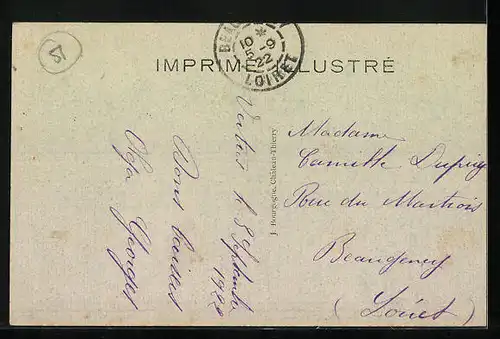 51
BEAU
10 * 5 -9 22
LOIRET
IMPRIMÉ ILLUSTRÉ
le 3 Septembre
1922
Bons baisers
Olga Georges
J. Bourgogne, Château-Thierry
Madame
Camille Dupuy
Rue du Martroi
Beaugency
(Loiret)